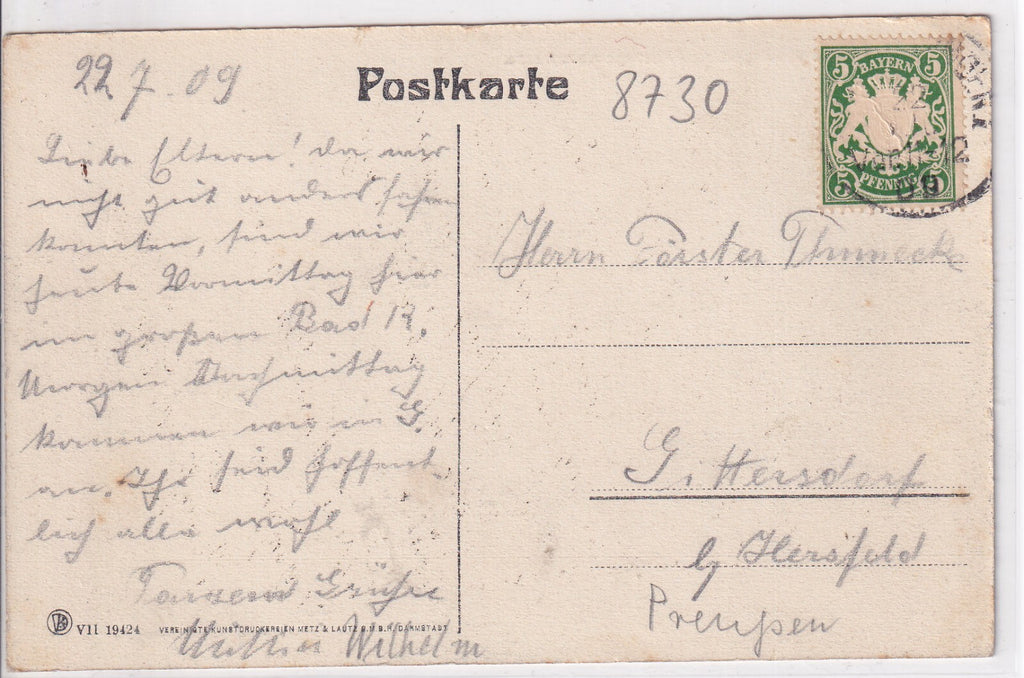 22 7. 09
Postkarte
8730
5 BAYERN 5
5 PFENNIG 5
22
09
Liebe Eltern! da wir
nicht gut anders fahren
konnten, sind wir
heute Vormittag hier
im großen Bad K.
Morgen Nachmittag
kommen wir in G.
an. Ihr seid hoffent
lich alle wohl
Grüße
Wilhelm
Herrn Förster
Gittersdorf
b/ Hersfeld
Preußen
VII 19424 VEREINIGTE KUNSTDRUCKEREIEN METZ & LAUTZ G.M.B.H. DARMSTADT